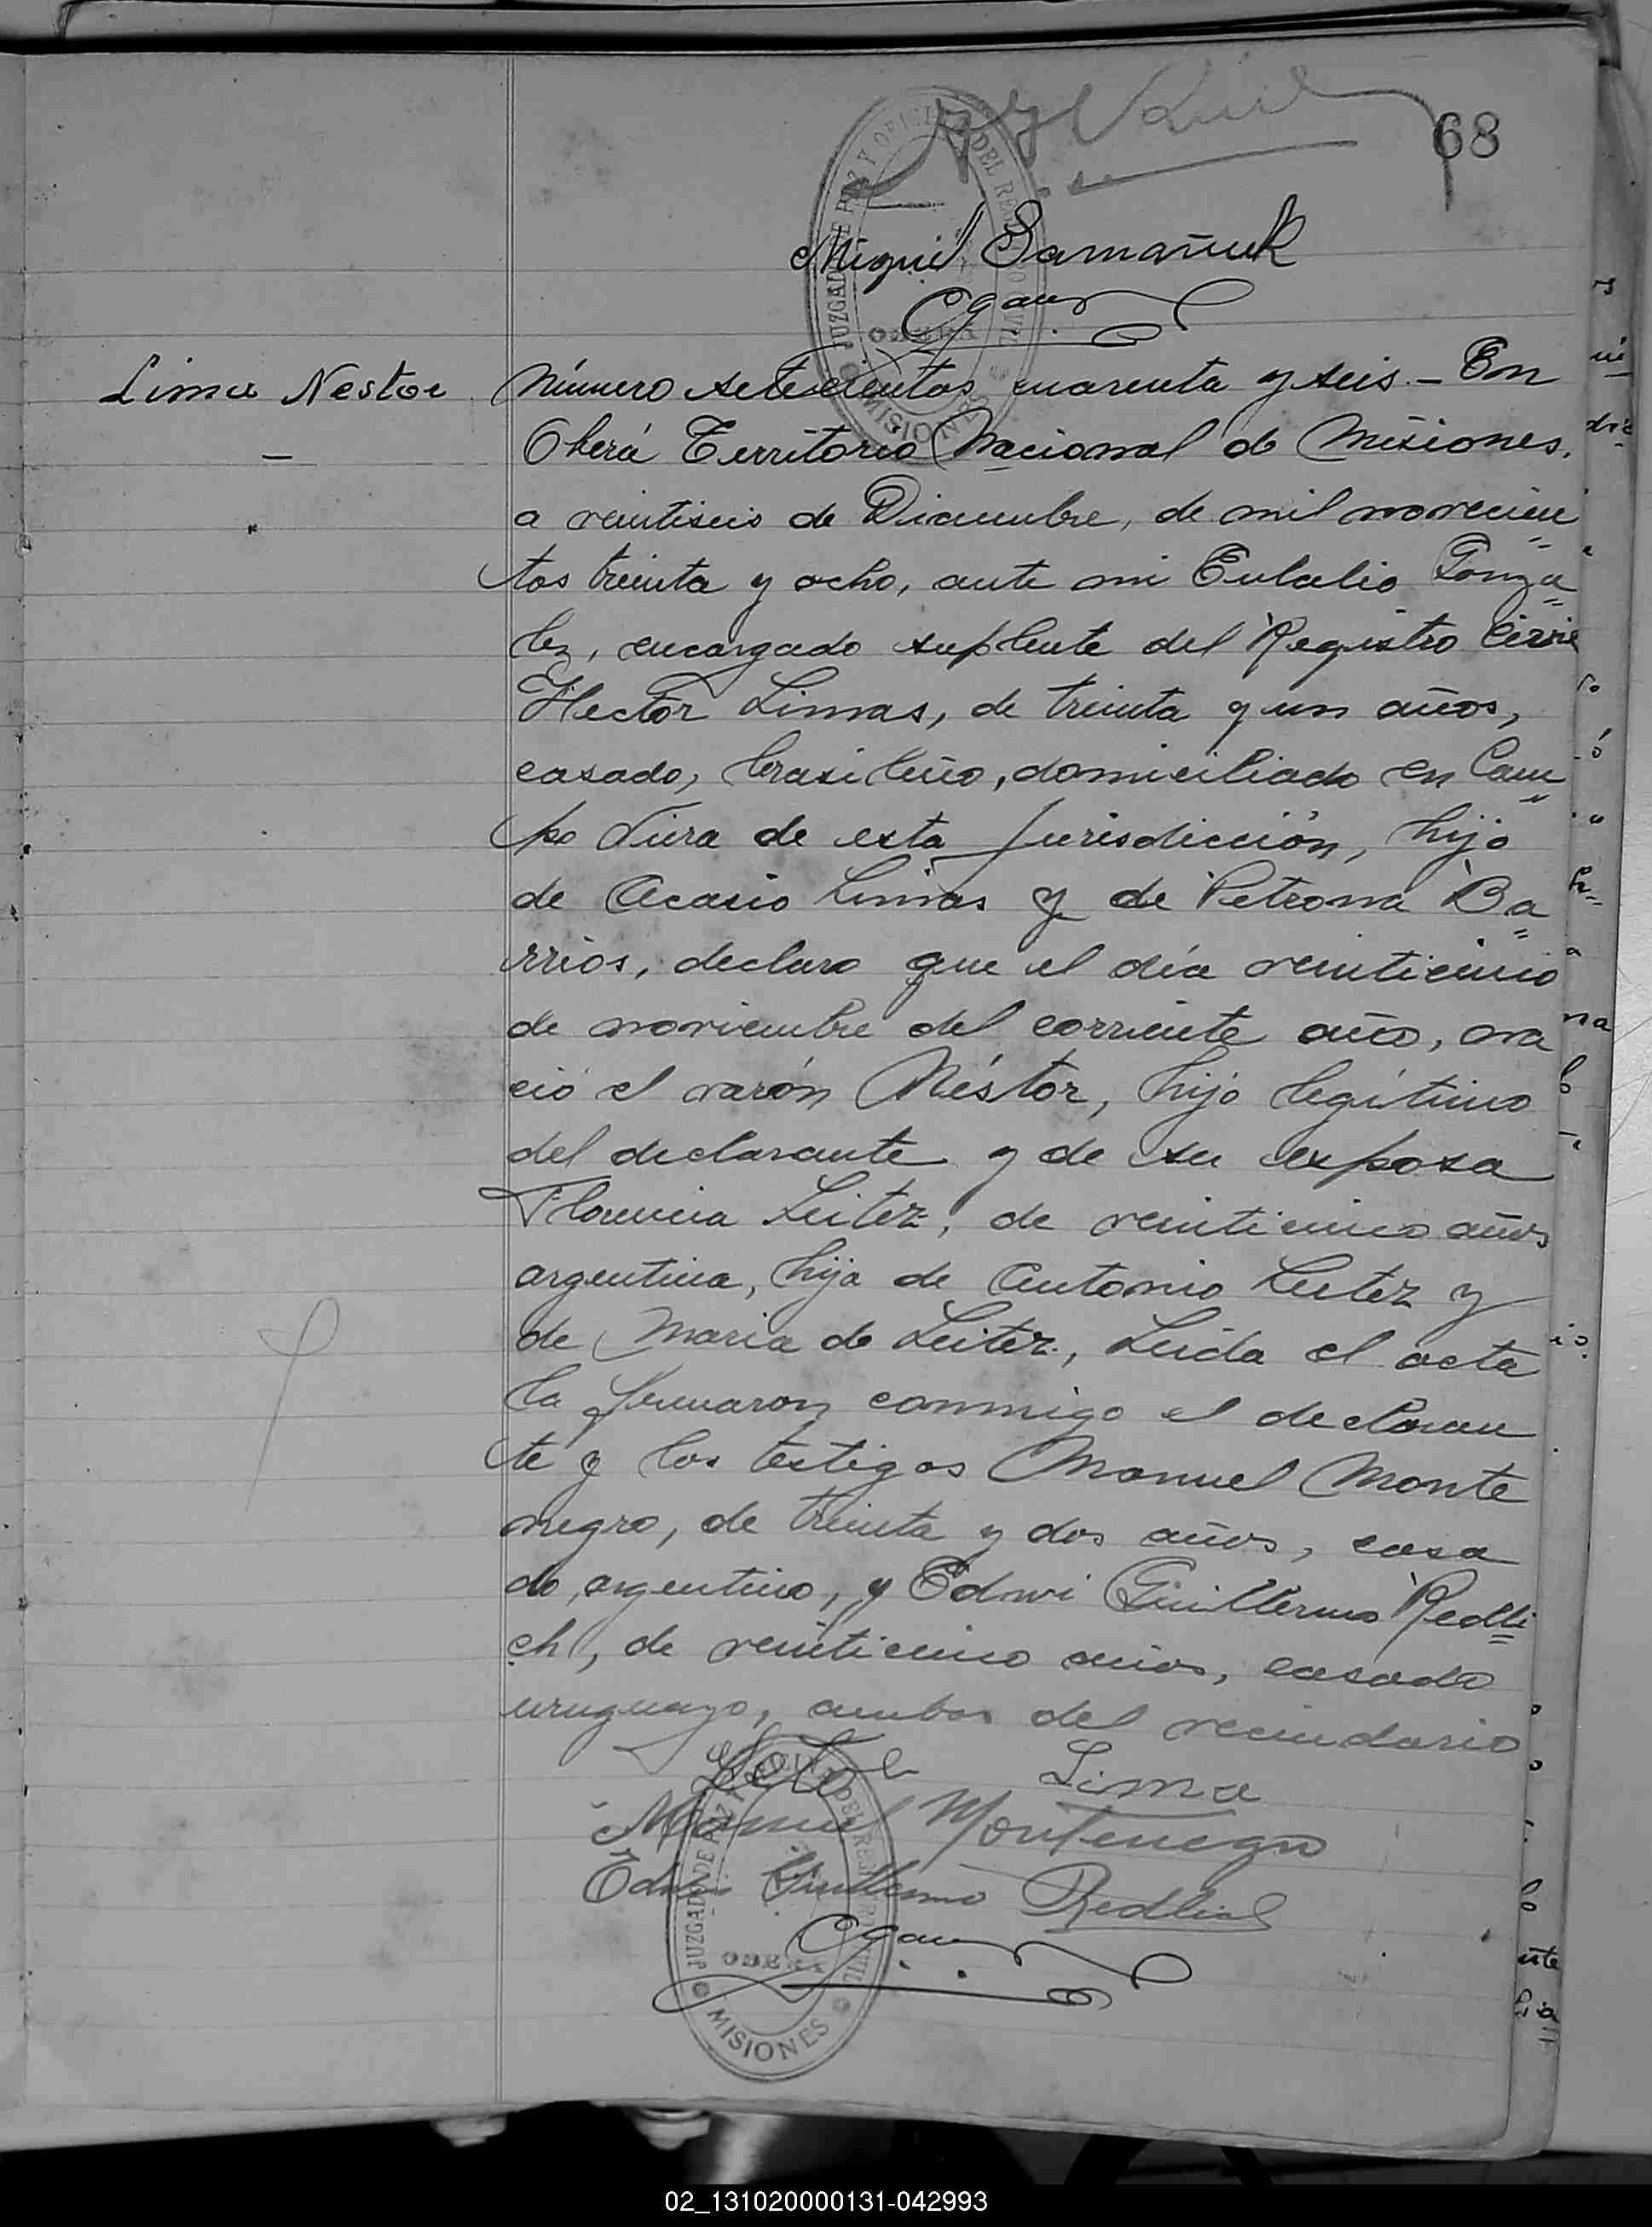 68
Miguel Samañuk
JUZGADO DE PAZ Y OFICINA DEL REGISTRO CIVIL
OBERA
MISIONES
Lima Nestor
Número setecientos cuarenta y seis. - En
Oberá Territorio Nacional de Misiones,
a veintiseis de Diciembre, de mil novecien
tos treinta y ocho, ante mi Eulalio Gonza
lez, encargado suplente del Registro Civil
Hector Limas, de treinta y un años,
casado, brasileño, domiciliado en Cam
po Viera de esta Jurisdicción, hijo
de Acasio Limas y de Petrona Ba
rrios, declaro que el día veinticinco
de noviembre del corriente año, na
ció el varón Néstor, hijo legítimo
del declarante y de su esposa
Florencia Leitez, de veinticinco años
argentina, hija de Antonio Leitez y
de Maria de Leitez, Leida el acta
la firmaron conmigo el declaran
te y los testigos Manuel Monte
negro, de treinta y dos años, casa
do, argentino, y Edwi Guillermo Redli
ch, de veinticinco años, casado
uruguayo, ambos del vecindario
Lima
Manuel Montenegro
Edwin Guillermo Redlich
JUZGADO DE PAZ Y OFICINA DEL REGISTRO CIVIL
OBERA
MISIONES
02_131020000131-042993